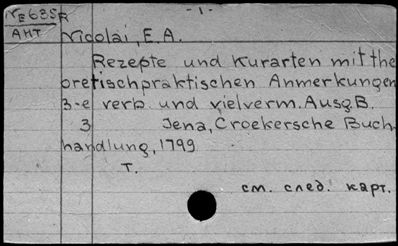 NE635R
- 1 -
АНТ
Nicolai, E. A.
Rezepte und Kurarten mit the
oretischpraktischen Anmerkungen
3-e verb. und vielverm. Ausg B.
3 Jena, Croekersche Buch
handlung, 1799
T.
см. след. карт.